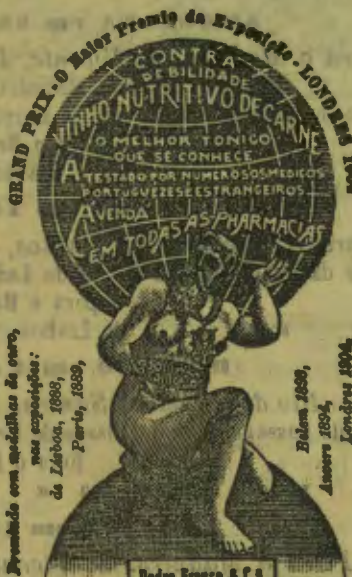 GRAND PRIX - O Maior Premio da Exposição - LONDRES
CONTRA
A DEBILIDADE
VINHO NUTRITIVO DE CARNE
O MELHOR TONICO
QUE SE CONHECE
ATESTADO POR NUMEROSOS MEDICOS
PORTUGUEZES E ESTRANGEIROS
Á VENDA
EM TODAS AS PHARMACIAS
Premiado com medalhas de ouro,
nas exposições:
de Lisboa, 1888,
Paris, 1889,
Belem 1893,
Anvers 1894,
Londres 1904,
Pedro Franco & C.ª